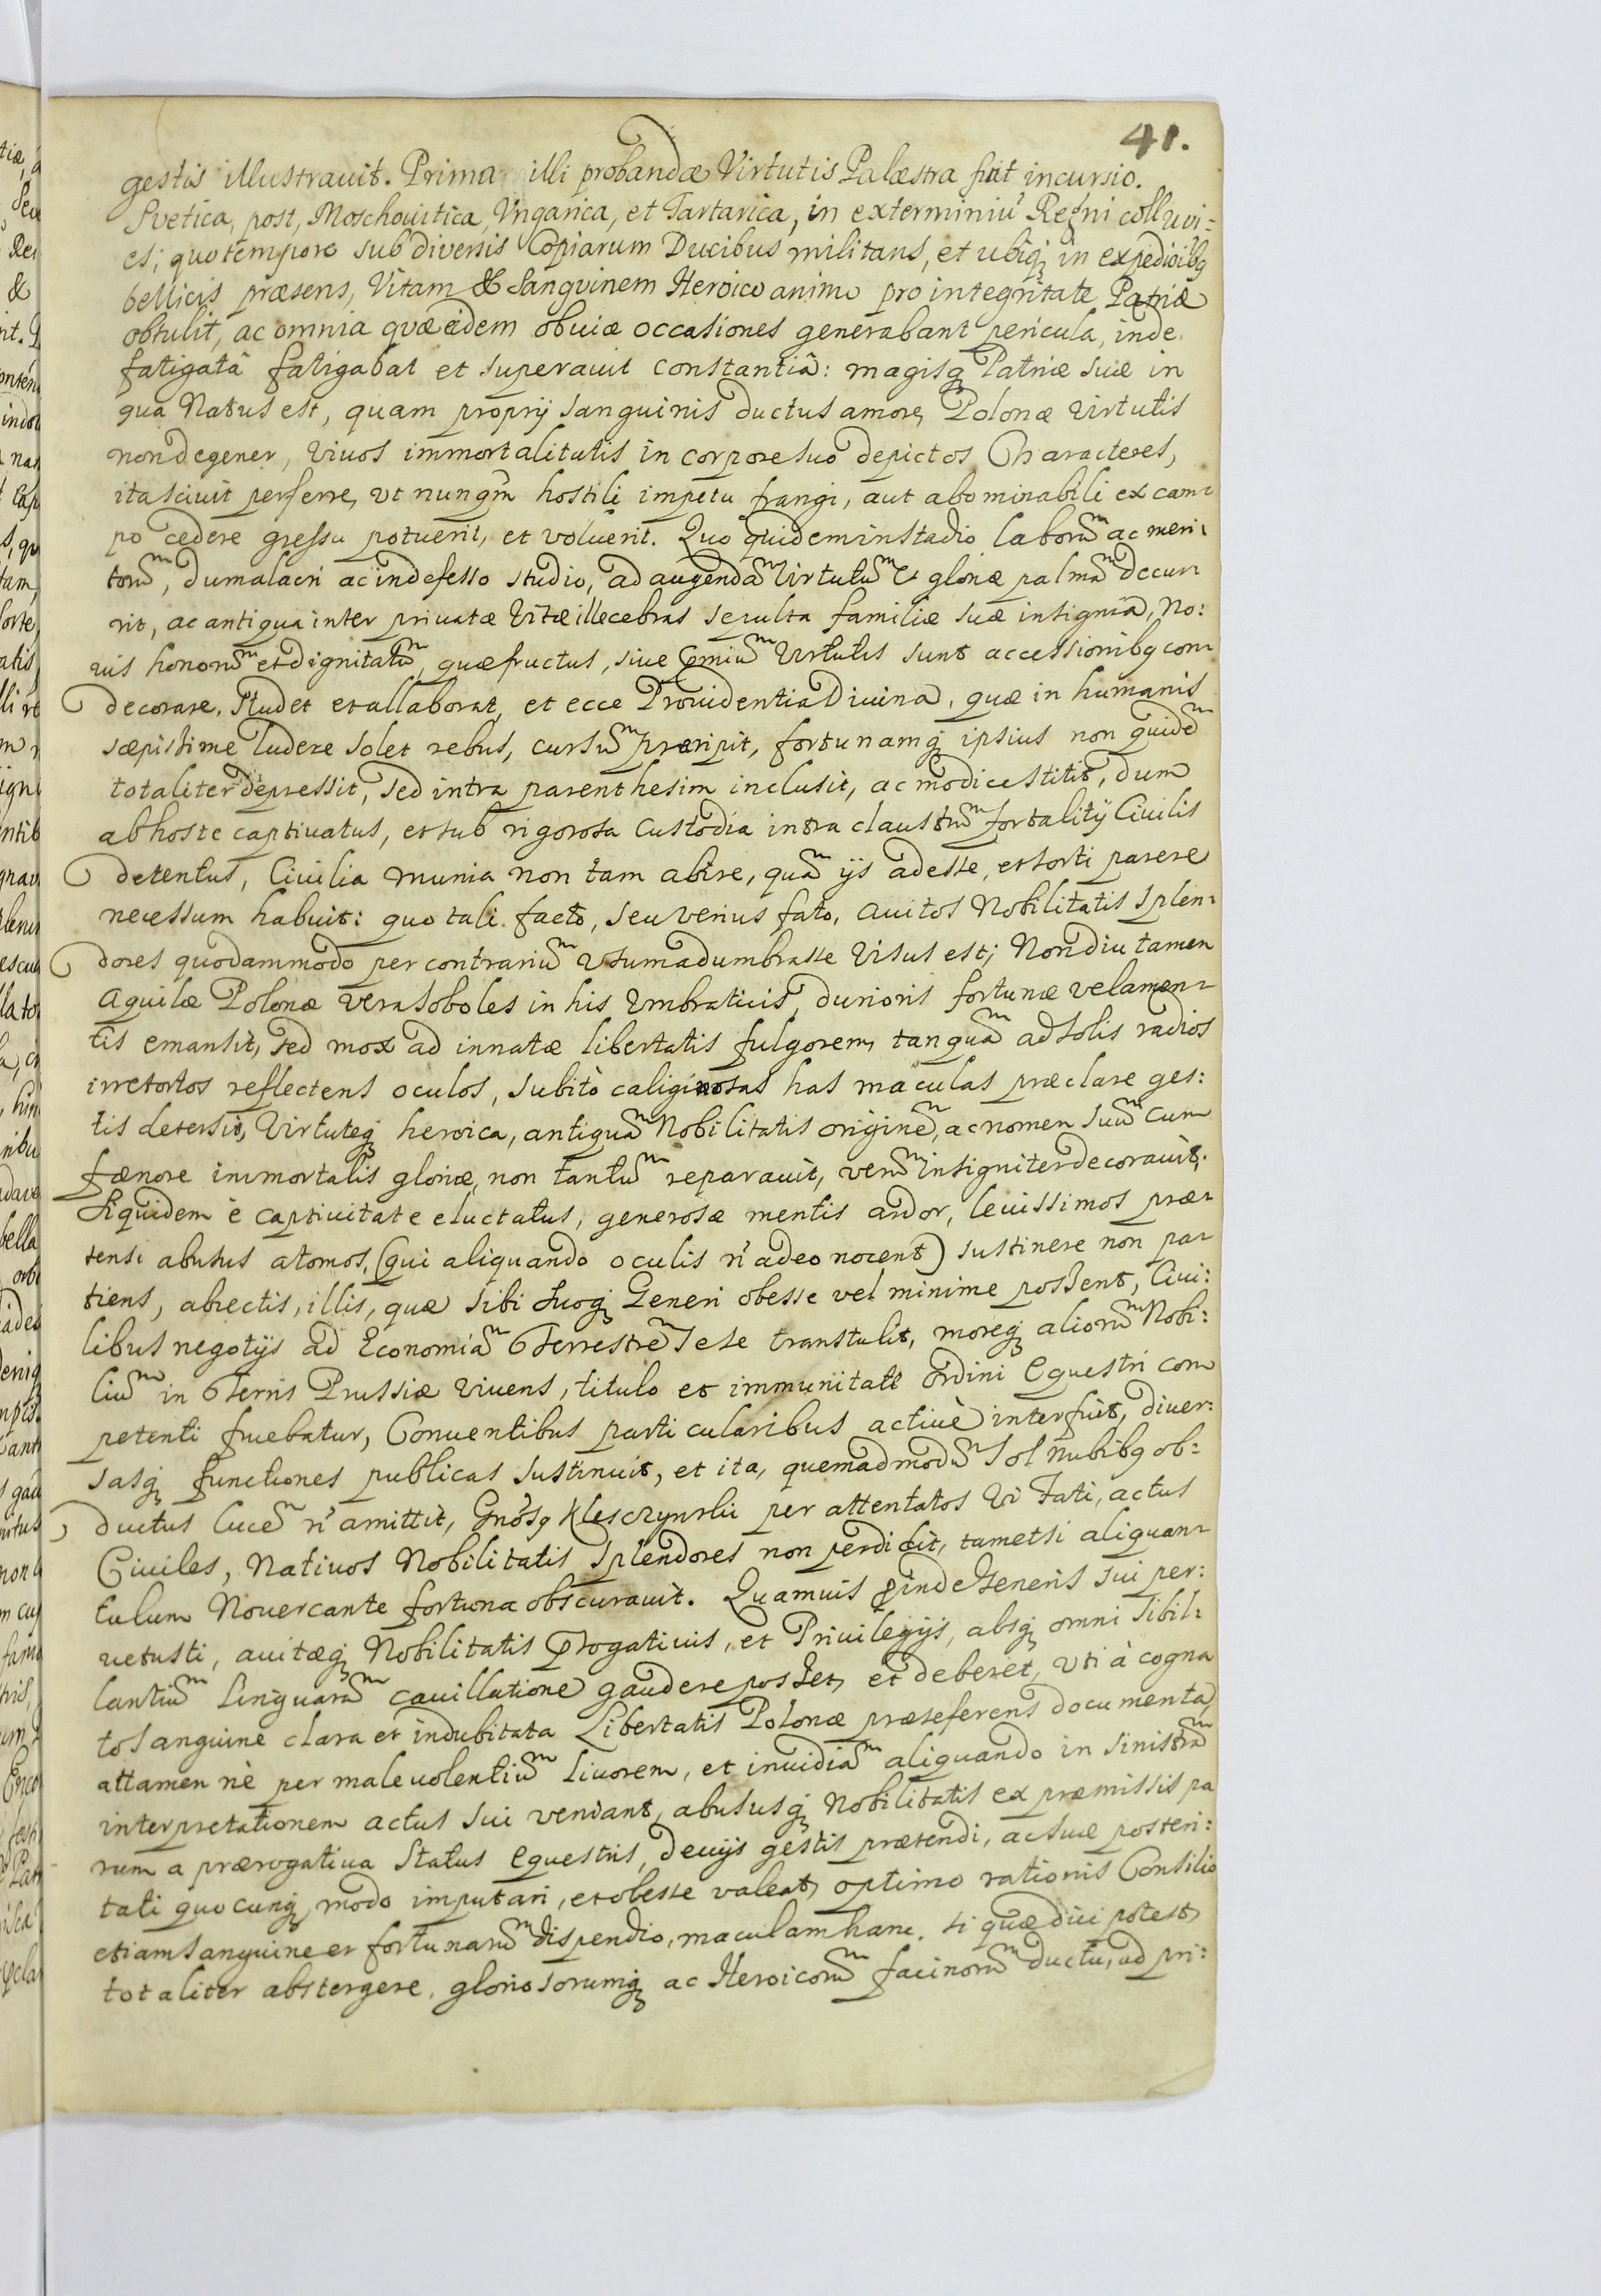 41.
gestis illustrauit. Prima illi probandæ Virtutis Palæstra fuit incursio.
Svetica, post, Moschouitica, Vngarica, et Tartarica, in exterminiũ Regni colluvi=
es; quo tempore sub diversis Copiarum Ducibus militans, et ubiq; in expediõibq
bellicis præsens, Vitam & Sangvinem Heroico animo pro integritate Patriæ
obtulit, ac omnia quæ eidem obuiæ occasiones generabant pericula, inde
fatigatâ fatigabat et superauit constantiâ: magisq; Patriæ suæ in
qua Natus est, quam proprij sanguinis ductus amore, Polonæ Virtutis
non degener, Vivos immortalitatis in corpore suo depictos Characteres,
ita sciuit perferre, ut nunqm̃ hostili impetu frangi, aut abominabili ex cam=
po cedere gressu potuerit, et voluerit. Quo quidem in stadio laborũ ac meri=
torũ, dum alacri ac indefesso studio, ad augendã Virtutũ & gloriæ palmã decur=
rit, ac antiqua inter priuatæ Vitæ illecebras sepulta familiæ suæ insignia, No:
uis honorũ et dignitatũ, quæ fructus, siue p̃miũ Virtutis sunt accessionibq con=
decorare, studet et allaborat, et ecce Prouidentia Diuina, quæ in humanis
sæpissime ludere solet rebus, cursũ præripit, fortunamq; ipsius non quidẽ
totaliter depressit, sed intra parenthesim inclusit, ac modice stitit, dum
ab hoste captiuatus, et sub rigorosa Custodia intra claustrũ fortalitij Ciuilis
detentus, Ciuilia munia non tam abire, quã ijs adesse, et sorti parere
necessum habuit: quo tali facto, seu verius fato, auitos Nobilitatis Splen=
dores quodammodo per contrariũ usum adumbrasse Visus est; Non diu tamen
Aquilæ Polonæ vera soboles in his Vmbraticis, durioris fortunæ velamen=
tis emansit, sed mox ad innatæ libertatis fulgorem, tanquã ad solis radios
irretortos reflectens oculos, subitò caliginosas has maculas præclare ges:
tis detersit, Virtuteq; heroica, antiquã Nobilitatis originẽ, ac nomen suũ cum
fænore immortalis gloriæ, non tantũ reparauit, verũ insigniter decorauit;
Siquidem è captiuitate eluctatus, generosæ mentis ardor, leuissimos præ=
tensi abusus atomos, (qui aliquando oculis ñ adeo nocent) sustinere non pa=
tiens, abiectis, illis, quæ sibi suoq; Generi obesse vel minime possent, Ciui:
libus negotijs ad Economiã Terrestrẽ sese transtulit, moreq; aliorũ Nobi:
liũ in Terris Prussiæ viuens, titulo et immunitate Ordini Equestri com
petenti fruebatur, Conuentibus particularibus actiuè interfuit, diver:
sasq; functiones publicas sustinuit, et ita, quemadmodũ Sol nubibq ob=
ductus lucẽ ñ amittit, Gñosq Klesczynski per attentatos Vi Fati, actus
Ciuiles, Nativos Nobilitatis Splendores non perdidit, tametsi aliquan=
tulum Nouercante fortuna obscurauit. Quamuis p̃inde Generis sui per:
uetusti, auitæq; Nobilitatis p̃rogatiuis, et Priuilegijs, absq; omni sibil=
lantiũ linguarũ cauillatione gaudere posset, et deberet, uti à cogna
to sanguine clara et indubitata Libertatis Polonæ præseferens documenta,
attamen nè per maleuolentiũ liuorem, et inuidiã aliquando in sinistrã
interpretationem actus sui veniant, abususq; Nobilitatis ex præmissis pa
rum a prærogatiua Status Equestris, deuijs gestis prætendi, ac suæ posteri:
tati quocunq; modo imputari, et obesse valeat, optimo rationis Consilio
etiam sanguine et fortunarũ dispendio, maculam hanc, si quæ dici potest,
totaliter abstergere, gloriosorumq; ac Heroicorũ facinorũ ductu, ad pri: